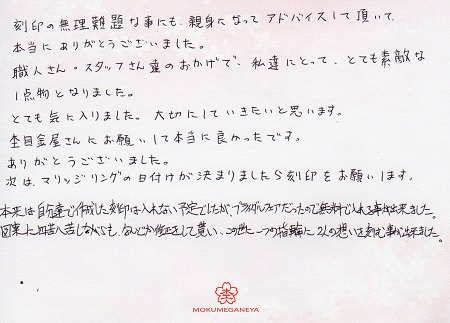 刻印の無理難題な事にも、親身になってアドバイスして頂いて、
本当にありがとうございました。
職人さん・スタッフさん達のおかげで、私達にとって、とても素敵な
1点物となりました。
とても気に入りました。大切にしていきたいと思います。
杢目金屋さんにお願いして本当に良かったです。
ありがとうございました。
次は、マリッジリングの日付けが決まりましたら刻印をお願いします。
本来は自分達で作成した刻印は入れない予定でしたが、ブライダルフェアだったので無料で入れる事が出来ました。
図案に四苦八苦しながらも、なんどか修正をして貰い、この世に一つの指輪に2人の想いを刻む事が出来ました。
MOKUMEGANEYA